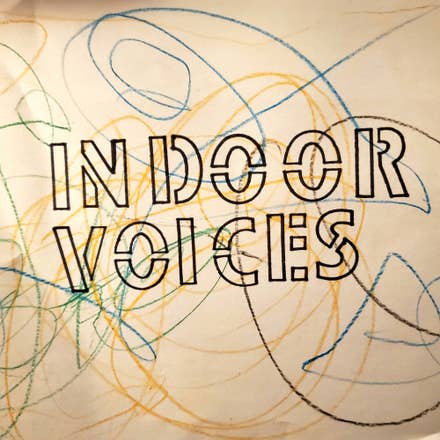 INDOOR
VOICES